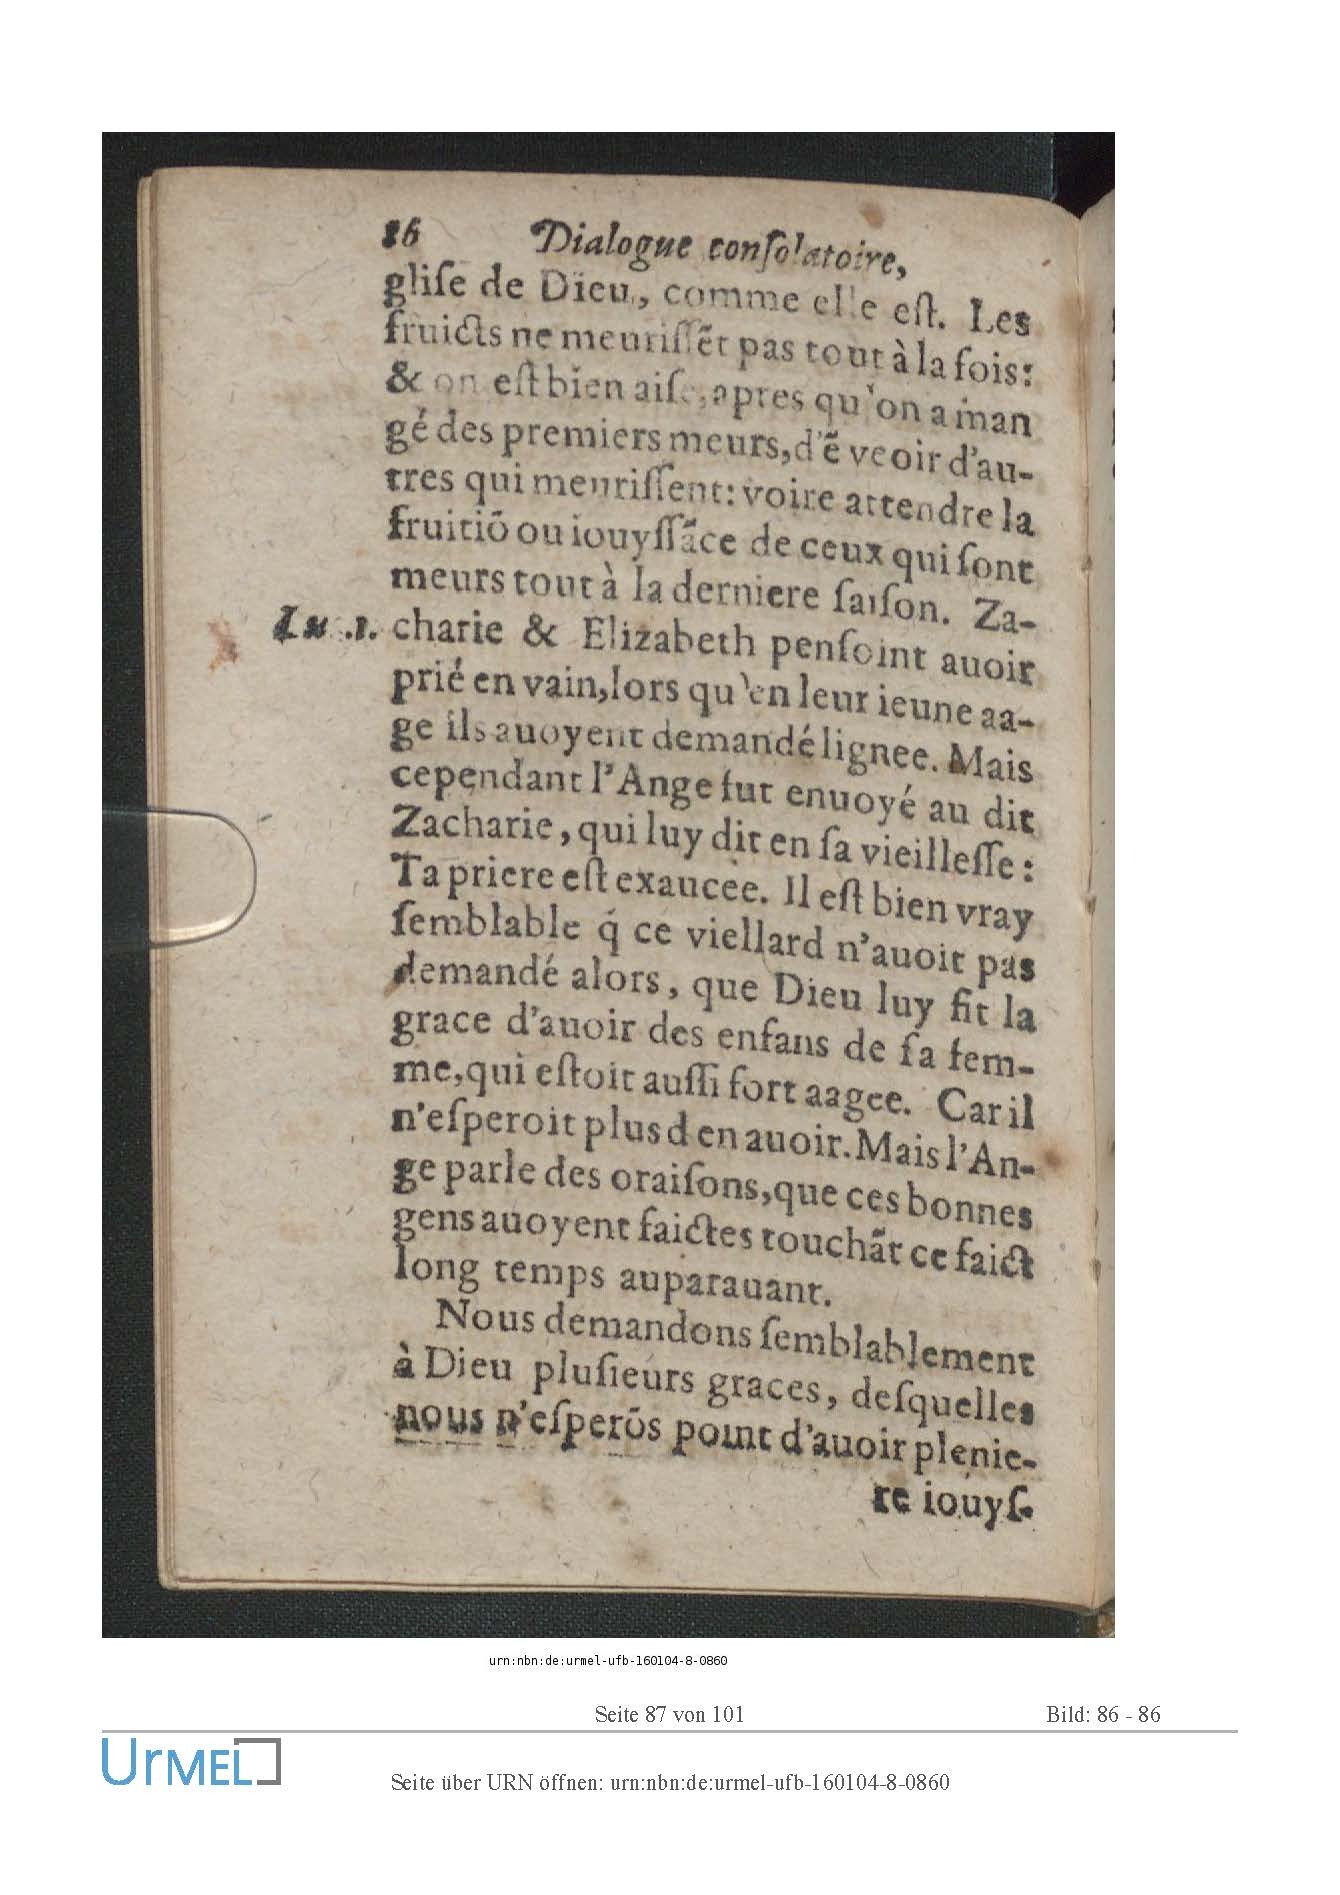 86 Dialogue conſolatoire,
gliſe de Dieu, comme elle eſt. Les
fruicts ne meuriſſẽt pas tout à la fois:
& on eſt bien aiſe, apres qu'on a man
gé des premiers meurs, d'ẽ veoir d'au-
tres qui meuriſſent: voire attendre la
fruitiõ ou iouyſſãce de ceux qui ſont
meurs tout à la derniere ſaiſon. Za-
Lu .1. charie & Elizabeth penſoint auoir
prié en vain, lors qu'en leur ieune aa-
ge ils auoyent demandé lignee. Mais
cependant l'Ange fut enuoyé au dit
Zacharie, qui luy dit en ſa vieilleſſe:
Ta priere eſt exaucée. Il eſt bien vray
ſemblable q́ ce viellard n'auoit pas
demandé alors, que Dieu luy fit la
grace d'auoir des enfans de ſa fem-
me, qui eſtoit auſſi fort aagee. Car il
n'eſperoit plus d en auoir. Mais l'An-
ge parle des oraiſons, que ces bonnes
gens auoyent faictes touchãt ce faict
long temps auparauant.
Nous demandons ſemblablement
à Dieu pluſieurs graces, deſquelles
nous n'eſperõs point d'auoir plenie-
re iouyſ-
urn:nbn:de:urmel-ufb-160104-8-0860
Seite 87 von 101 Bild: 86 - 86
UrMEL
Seite über URN öffnen: urn:nbn:de:urmel-ufb-160104-8-0860